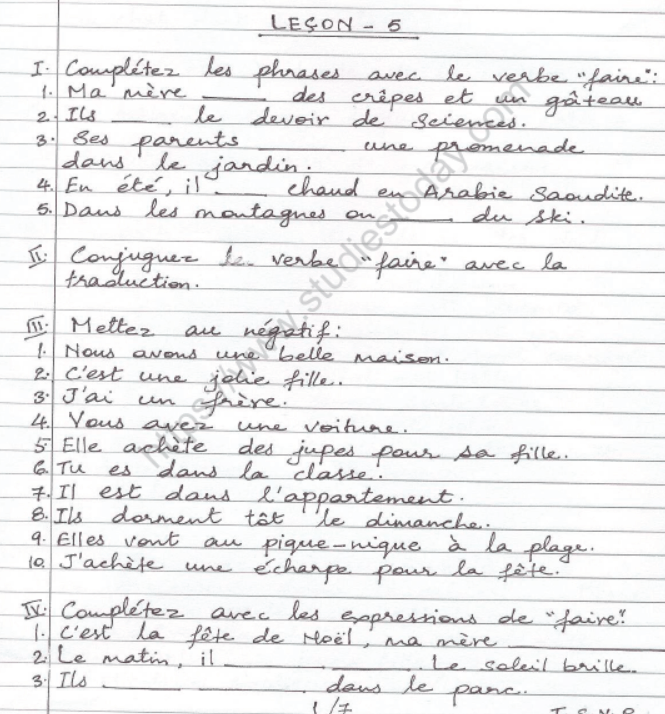 LEÇON - 5
I. Complétez les phrases avec le verbe "faire":
1. Ma mère ____ des crêpes et un gâteau
2. Ils ____ le devoir de Sciences.
3. Ses parents ____ une promenade
dans le jardin.
4. En été, il ____ chaud en Arabie Saoudite.
5. Dans les montagnes on ____ du ski.
II. Conjuguez le verbe "faire" avec la
traduction.
III. Mettez au négatif:
1. Nous avons une belle maison.
2. C'est une jolie fille.
3. J'ai un frère.
4. Vous avez une voiture.
5. Elle achète des jupes pour sa fille.
6. Tu es dans la classe.
7. Il est dans l'appartement.
8. Ils dorment tôt le dimanche.
9. Elles vont au pique-nique à la plage.
10. J'achète une écharpe pour la fête.
IV. Complétez avec les expressions de "faire".
1. C'est la fête de Noël, ma mère ____
2. Le matin, il ____ ____. Le soleil brille.
3. Ils ____ ____ dans le parc.
1/7
https://www.studiestoday.com